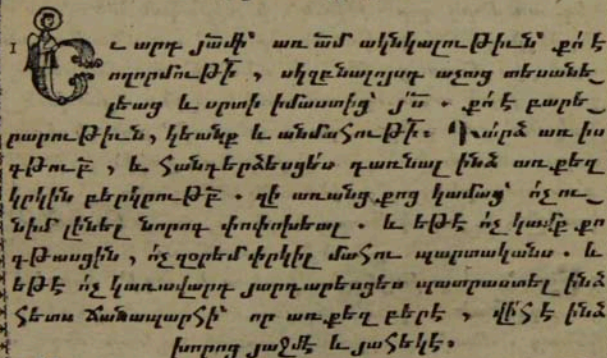 1 Եւ արդ յա̄մի՝ առ ա̄մ ակնկալութիւն՝ քո՛ է
ողորմութի̄, սկզբնալոյսդ աչաց տեսանե֊
լեաց և սրտի իմաստից՝ յ̄ս. քո՛ է բարե֊
րարութիւն, կեանք և անմահութի̄։ Դա՛րձ առ իս
գթութբ̄, և հանդերձեսցես դառնալ ինձ առ քեզ
կրկին բերկրութբ̄. զի առանց քոց կամաց՝ ոչ ու֊
նիմ լինել նորոգ փոփոխեալ. և եթէ ոչ կամք քո
գթասցին, ոչ զօրեմ փրկիլ մահու պարտականս. և
եթէ ոչ կառավարդ յարդարեսցես պատրաստել ինձ
հետս ճանապարհի՝ որ առ քեզ բերէ, վի՛հ է ինձ
խորոց յաջմէ և յահեկէ։